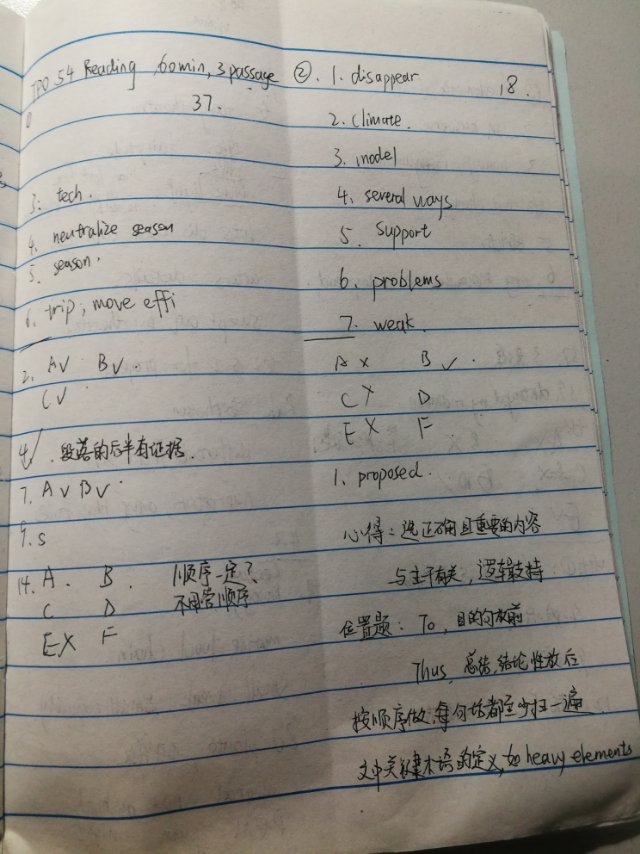 TPO 54 Reading, 60min, 3 passage
37.
3. tech.
4. neutralize season
5. season.
6. trip, move effi
2. A✓ B✓.
C✓
4✓. 段落的后半有证据.
7. A✓ B✓.
9. s
14. A. B. 顺序一定?
C D 不用管顺序
E× F
②. 1. disappear 18.
2. climate.
3. model
4. several ways
5. support
6. problems
7. weak.
A × B ✓.
C × D
E × F
1. proposed.
心得: 选正确且重要的内容
与主干有关, 逻辑支持
位置题: To, 目的句放前
Thus, 总结, 结论性放后
按顺序做, 每句话都至少扫一遍
文中关键术语的定义, to heavy elements